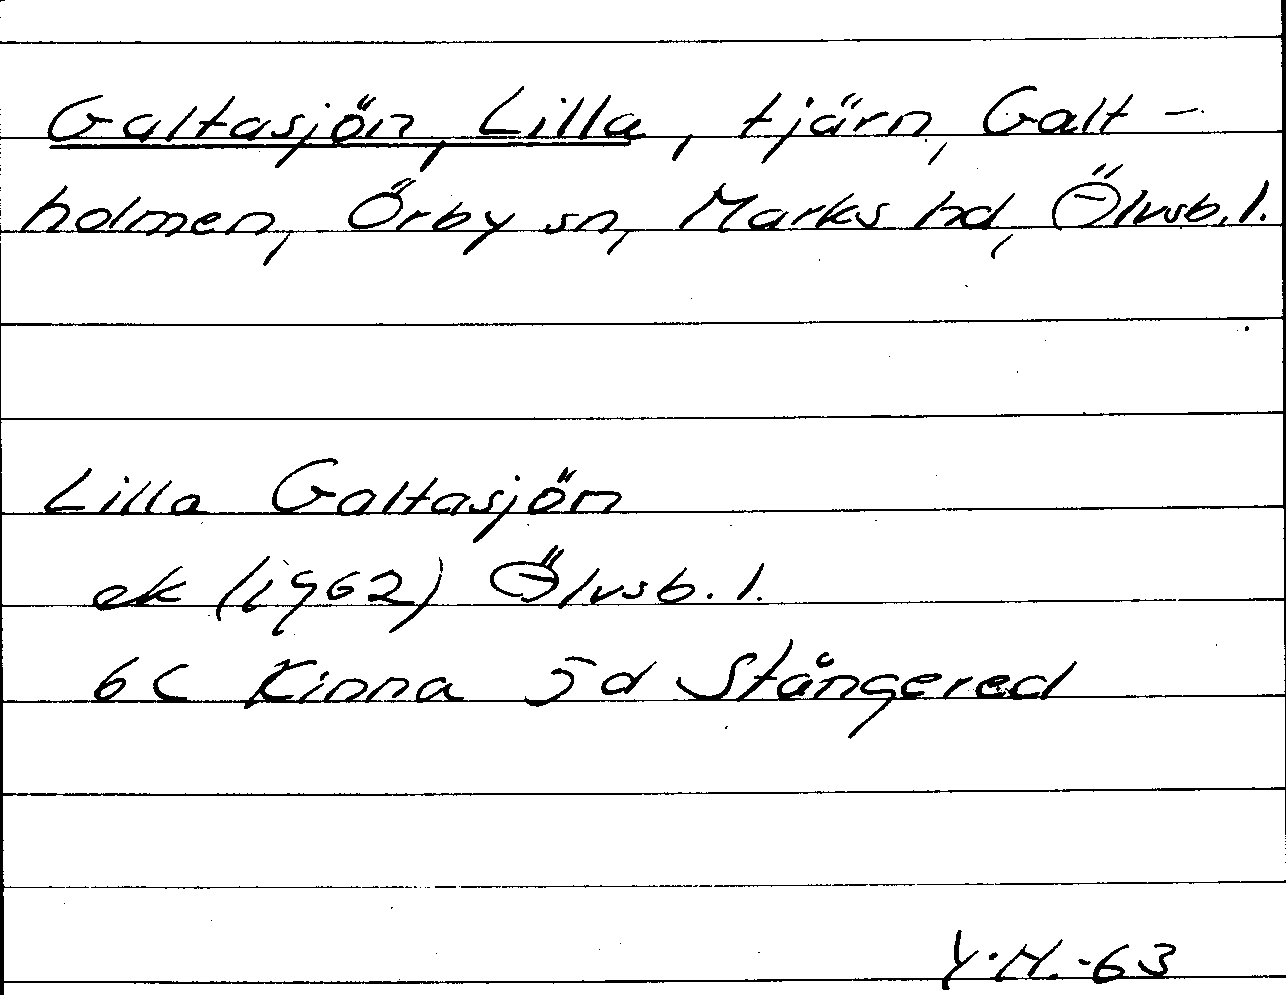 Galtasjön, Lilla, tjärn, Galt-
holmen, Örby sn, Marks hd, Älvsb. l.
Lilla Galtasjön
ek (1962) Älvsb. l.
6C Kinna 5d Stångered
Y.H. -63